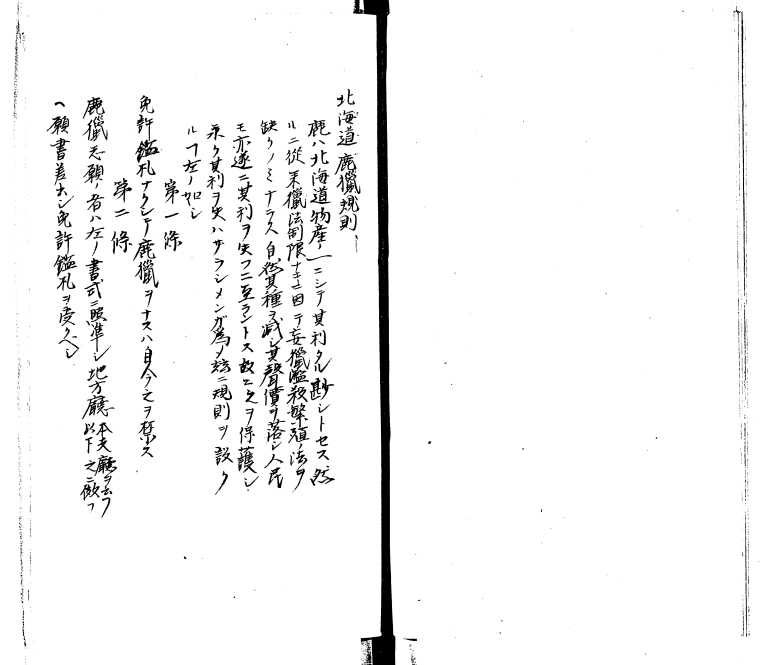 北海道鹿獵規則
鹿ハ北海道物産ノ一ニシテ其利タル尠シトセス然
ルニ從来獵法制限ナキニ因テ妄獵濫殺繁殖ノ法ヲ
缺クノミナラス自然其種ヲ減シ其聲價ヲ落シ人民
モ亦遂ニ其利ヲ失フニ至ラントス故ニ之ヲ保護シ
永ク其利ヲ失ハサラシメンガ為メ玆ニ規則ヲ設ク
ルヿ左ノ如シ
第一條
免許鑑札ナクシテ鹿獵ヲナスハ自今之ヲ禁ス
第二條
鹿獵志願ノ者ハ左ノ書式ニ照準シ地方廳本支廳ヲ云フ以下之ニ倣フ
ヘ願書差出シ免許鑑札ヲ受クヘシ